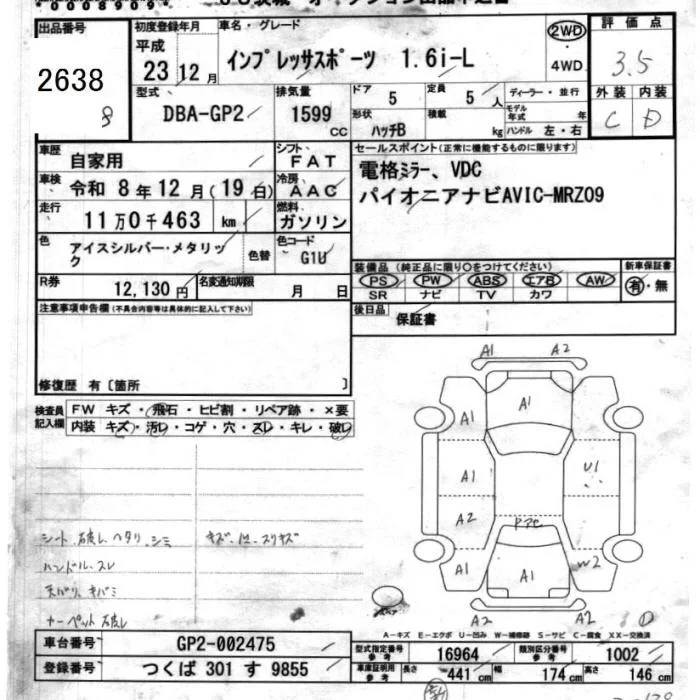 00089091
出品番号
2638
8
初度登録年月
平成
23年12月
車名・グレード
インプレッサスポーツ 1.6i-L
2WD
・
4WD
評価点
3.5
外装 内装
C D
型式
DBA-GP2
排気量
1599
CC
ドア
5
定員
5人
形状
ハッチB
積載
kg
ディーラー・並行
モデル
年式
年
ハンドル 左・右
車歴
自家用
シフト
FAT
車検
令和 8年12月(19日)
冷房
AAC
走行
11万0千463 km
燃料
ガソリン
色
アイスシルバー・メタリッ
ク
色替
色コード
G1U
R券
12,130円
名変通知期限
月 日
セールスポイント(正常に機能するものに限ります)
電格ミラー、VDC
パイオニアナビAVIC-MRZ09
装備品 (純正品に限り○をつけてください)
PS PW ABS エアB AW
SR ナビ TV カワ
新車保証書
有・無
後日品
保証書
注意事項申告欄(不具合内容等は具体的に記入して下さい)
修復歴 有〔箇所 〕
検査員
記入欄
FW キズ・飛石・ヒビ割・リペア跡・×要
内装 キズ・汚レ・コゲ・穴・スレ・キレ・破レ
シート 破レ、ヘタリ、シミ
ハンドル スレ
天バリ、キバミ
カーペット 破レ
A1 A2
A1
A1
A1
U1
A2
A1
A1
W2
A2 A2
A-キズ E-エクボ U-凹み W-補修跡 S-サビ C-腐食 XX-交換済
車台番号
GP2-002475
登録番号
つくば 301 す 9855
型式指定番号
参考
16964
類別区分番号
参考
1002
車庫証明用
参考
長さ
441 cm
幅
174 cm
高さ
146 cm